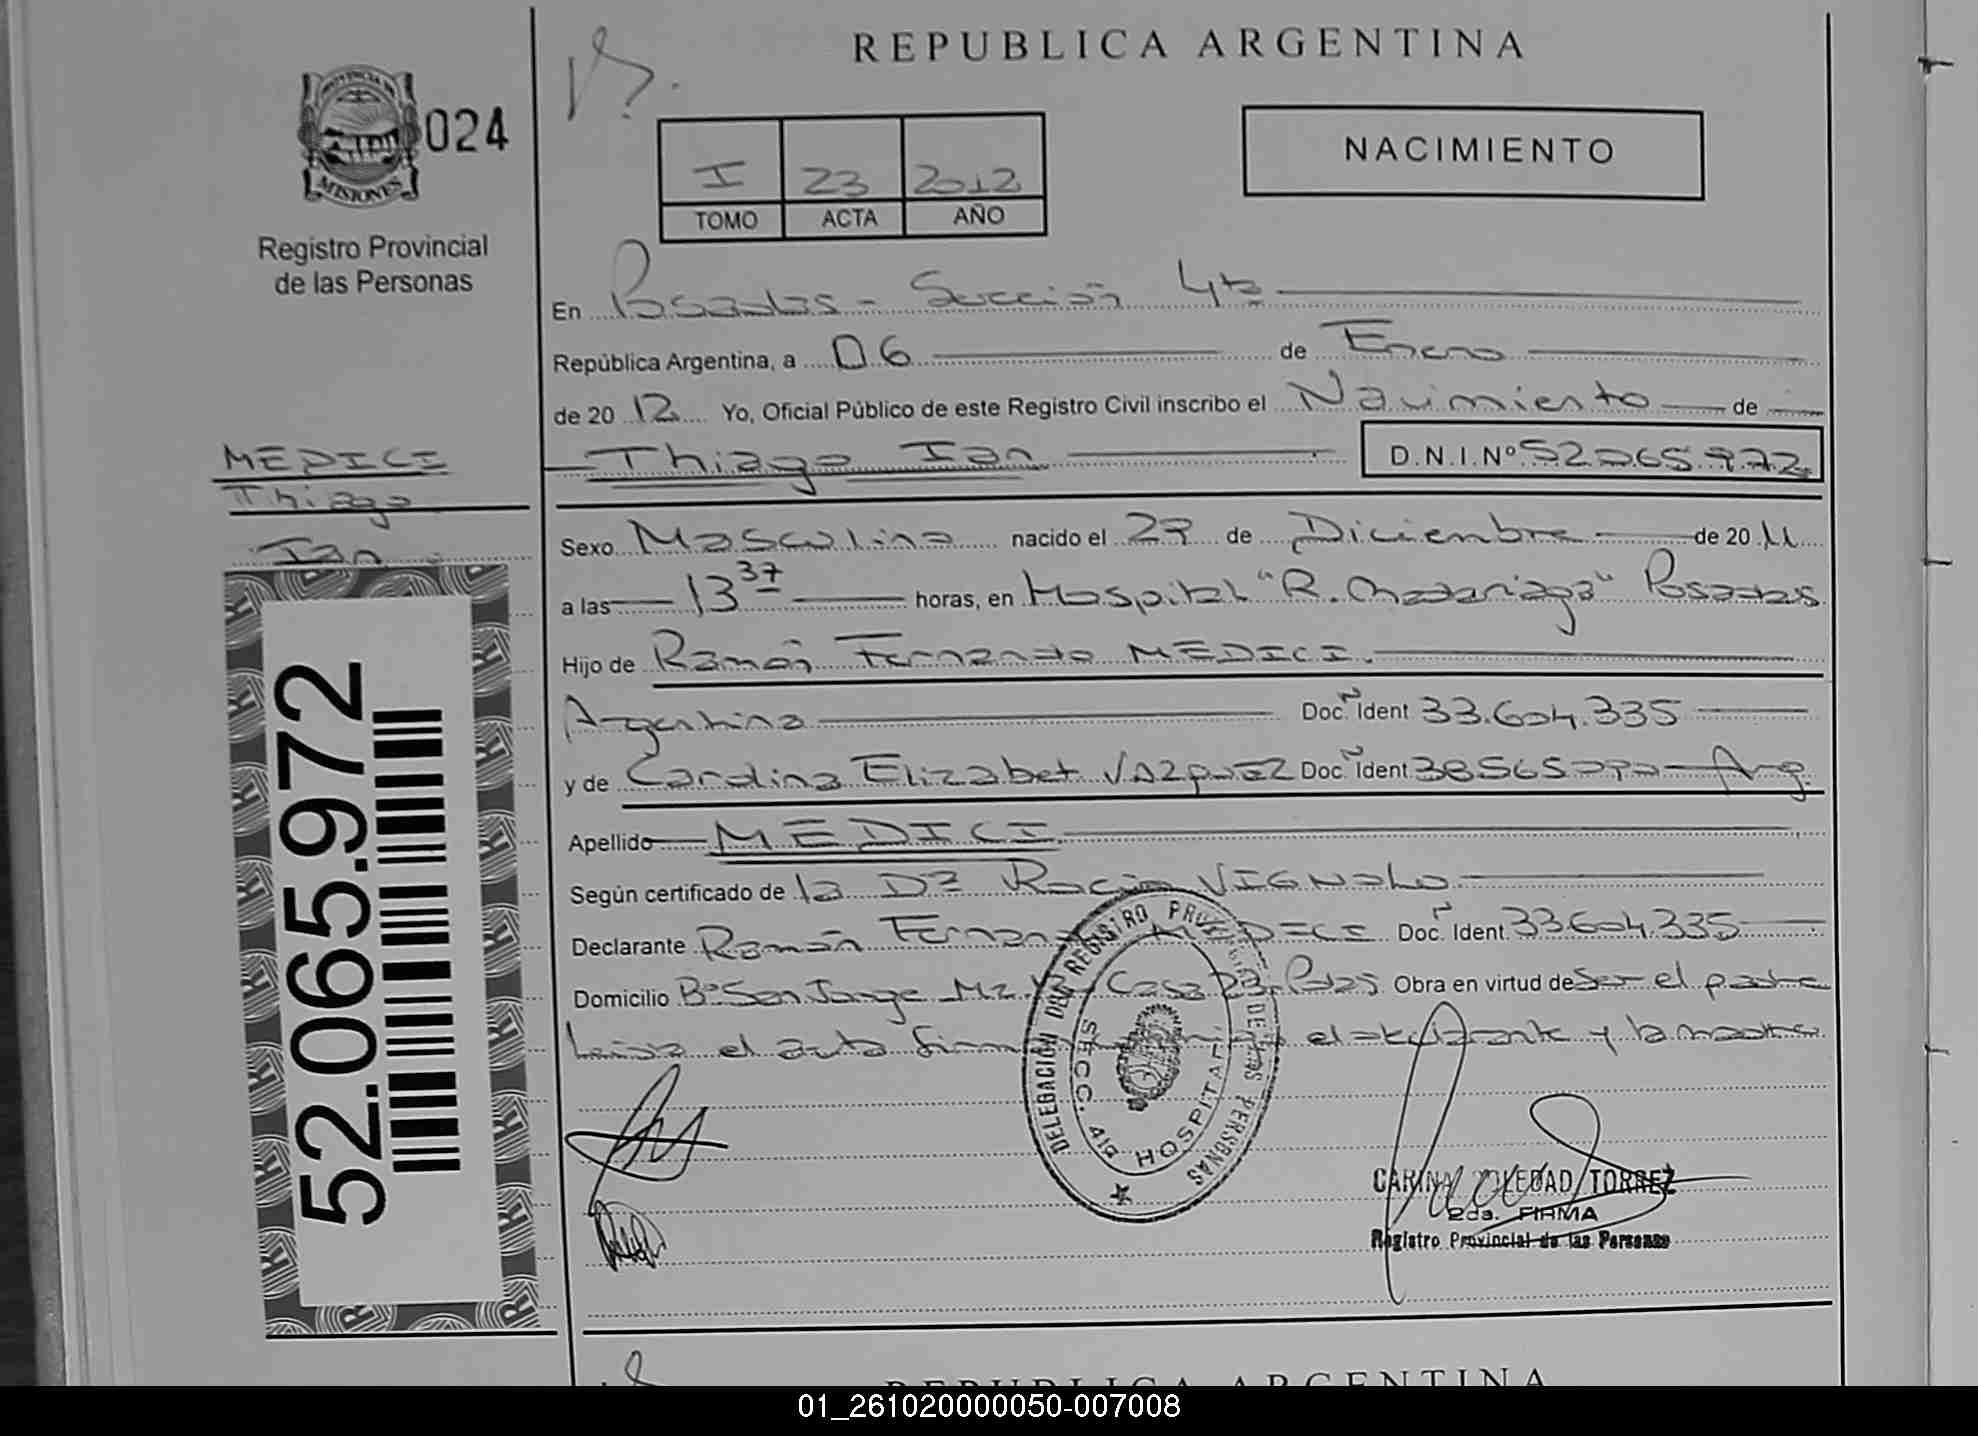 REPUBLICA ARGENTINA
PROVINCIA DE
MISIONES
024
Registro Provincial
de las Personas
I 23 2012
TOMO ACTA AÑO
NACIMIENTO
En Posadas - Sección 4ta
República Argentina, a 06 de Enero
de 2012 Yo, Oficial Público de este Registro Civil inscribo el Nacimiento de
Thiago Ian D.N.I.Nº 52065972
MEDICI
Thiago
Ian
Sexo Masculino nacido el 29 de Diciembre de 2011
a las 13 37 horas, en Hospital "R. Madariaga" Posadas
Hijo de Ramón Fernando MEDICI.
Argentina Doc. Ident 33.604.335
y de Carolina Elizabet VAZQUEZ Doc. Ident. Arg.
Apellido MEDICI
Según certificado de la Dra Rocío VIGNOLO
Declarante Ramón Fernando MEDICI Doc. Ident. 33.604.335
Domicilio Bº San Jorge Mz Casa 23 Pdas Obra en virtud de ser el padre
el acta el declarante y la madre
52.065.972
DELEGACION DEL REGISTRO PROVINCIAL DE LAS PERSONAS
SECC. 4ta HOSPITAL
CARINA SOLEDAD TORREZ
2da. FIRMA
Registro Provincial de las Personas
REPUBLICA ARGENTINA
01_261020000050-007008